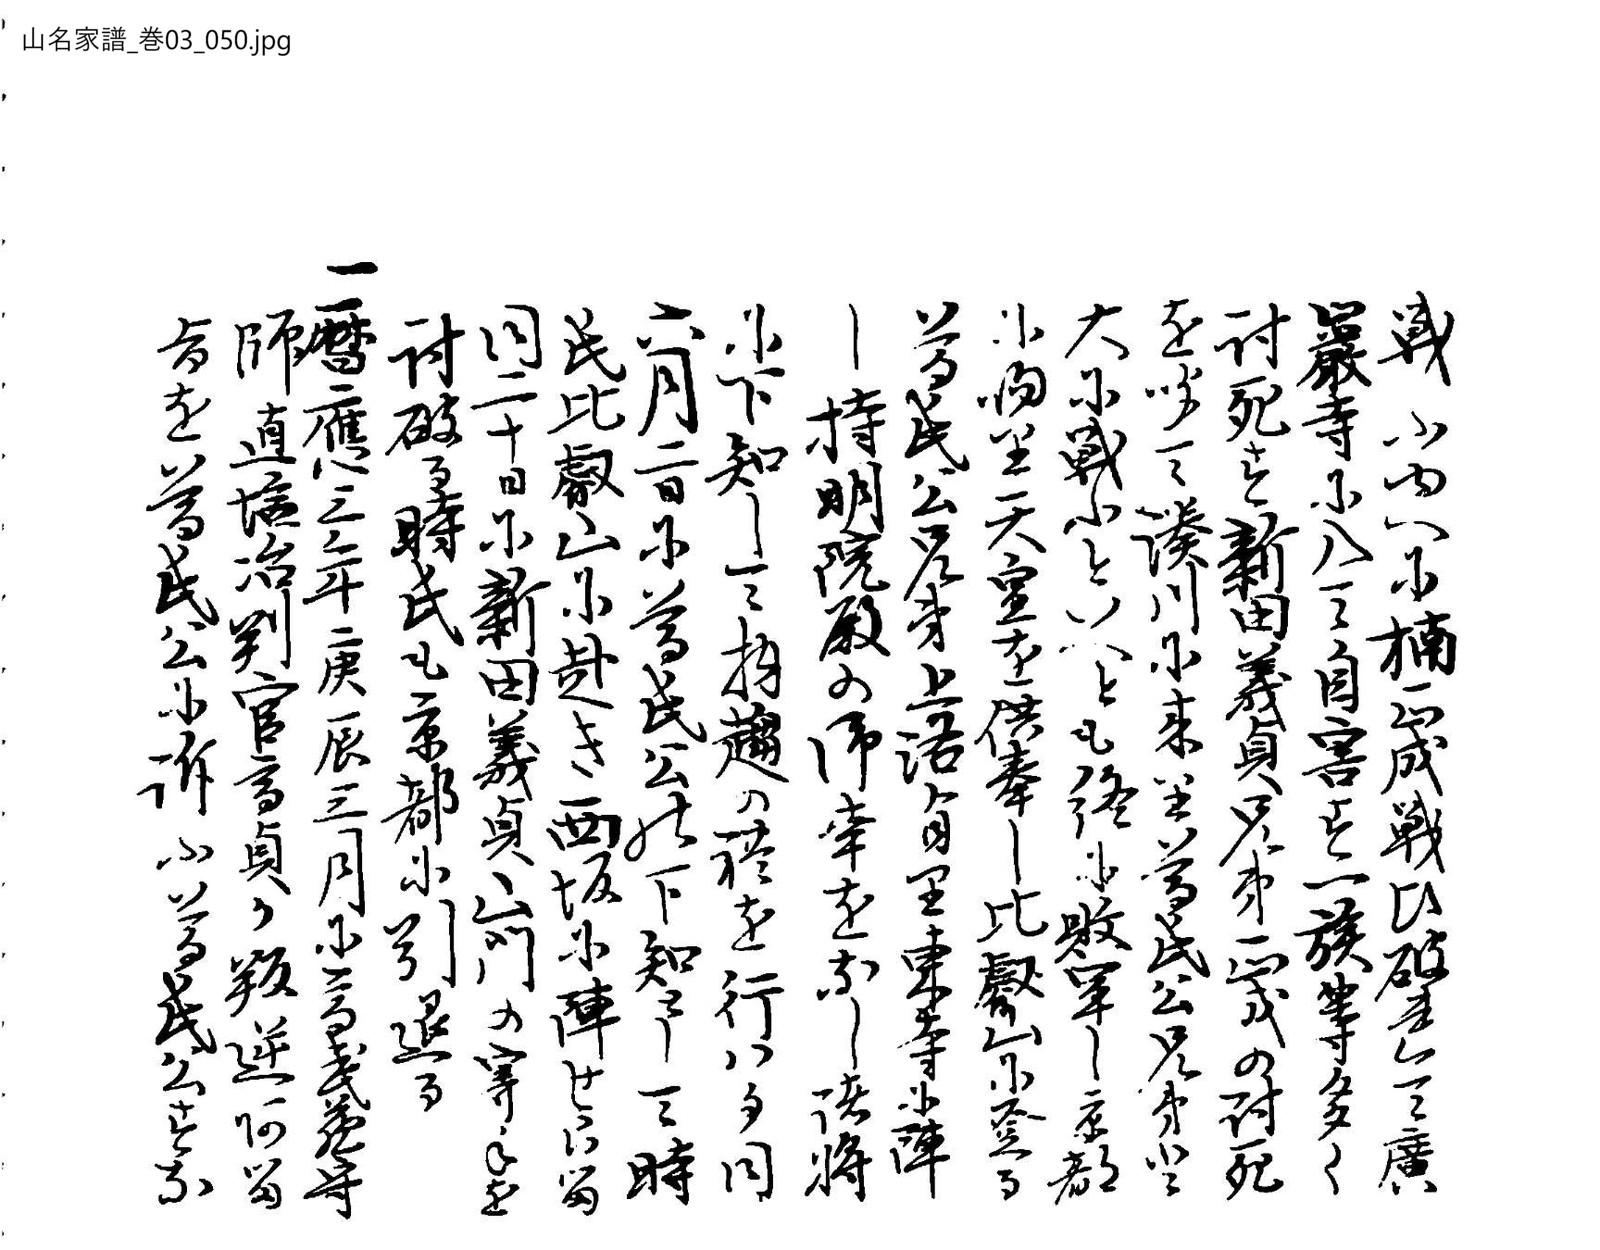 山名家譜_巻03_050.jpg
戦ふ内八に楠正成戦ひ破れて廣
嚴寺に入て自害す一族等多く
討死す新田義貞兄弟正成の討死
を聞て湊川に来り尊氏公兄弟と
大に戦ふといへとも終に敗軍し京都
に帰り天皇を供奉し比叡山に登る
尊氏公兄弟上洛有り東寺に陣
し持明院殿の御幸をなし諸将
に下知して拝趨の禮を行はる同
六月二日に尊氏公の下知として時
氏比叡山に赴き西坂に陣せらる
同二十日に新田義貞山門の寄手を
討破る時氏も京都に引退る
一暦應三年庚辰三月に高武蔵守
師直塩冶判官高貞か叛逆の
旨を尊氏公に訴ふ尊氏公すな